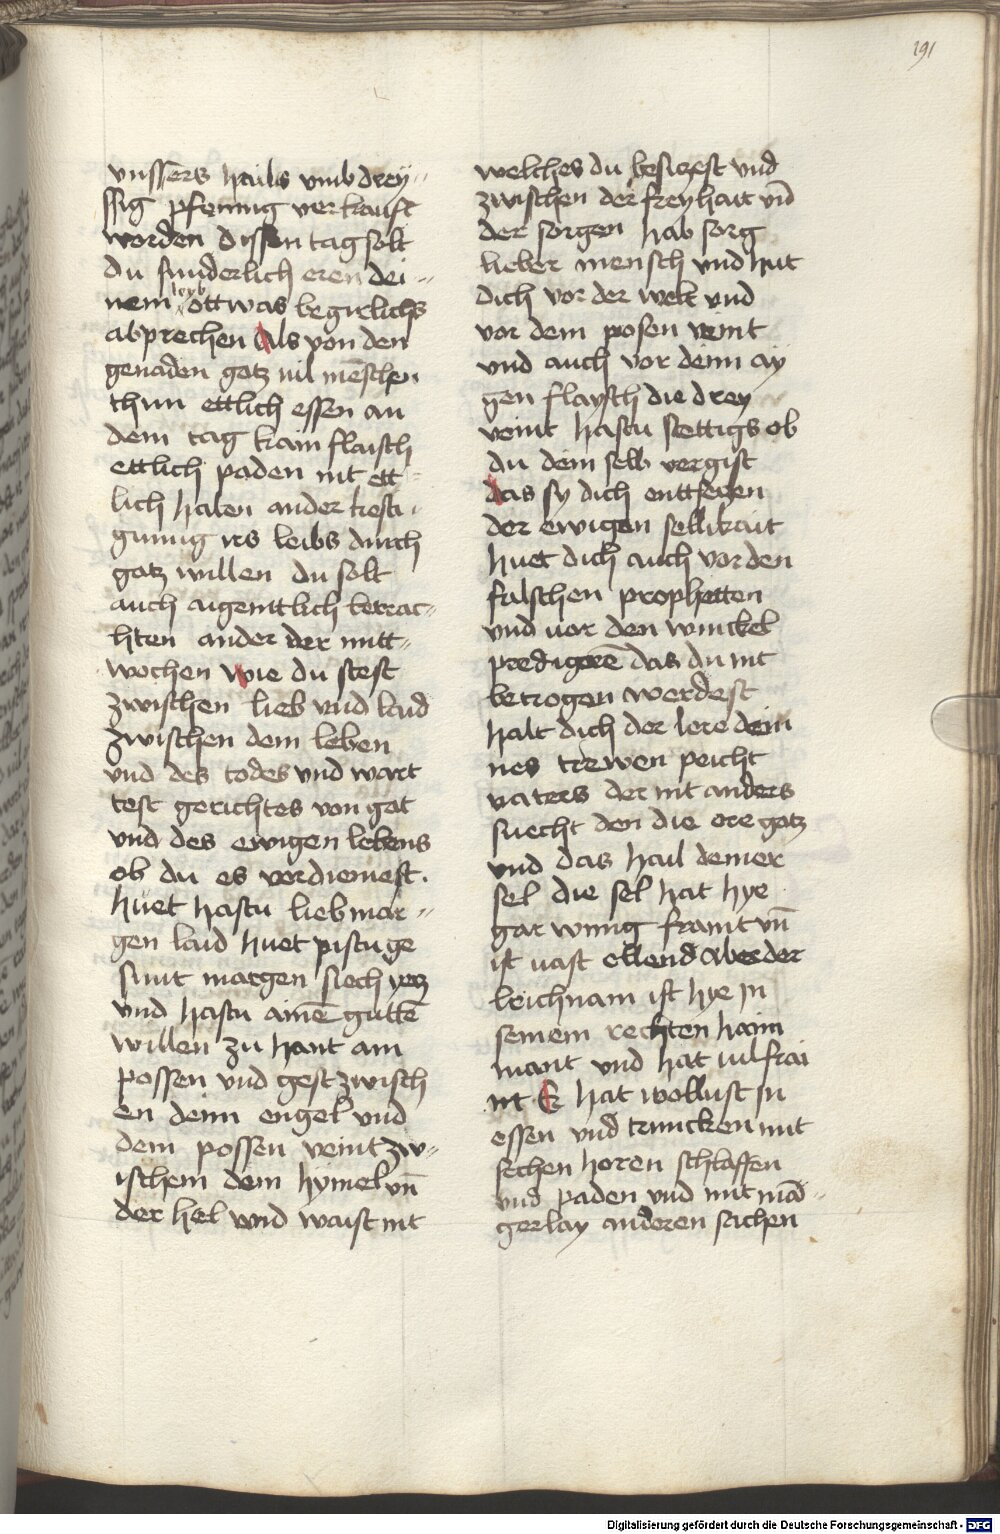 191
vnssers hails vmb drey-
ssig pfening verkauft
worden dissen tag solt
du sunderlich eren dei-
nem leyb ettwas begirlichs
abprechen Als von den
genaden gotz vil mēschen
thun ettlich essen an
dem tag kain flaisch
ettlich paden nit ett-
lich haben ander kesti-
gunng irs leibs durch
gotz willen du solt
auch aigenttlich betrac-
hten ander der mitt-
wochen wie du stest
zwischen lieb vnd laid
zwischen dem leben
vnd des todes vnd wart
test gerichtes von got
vnd des ewigen lebens
ob du es verdienest.
huet hastu lieb mar-
gen laid huet pistu ge
sunt margen siech yetz
vnd hastu ainē guttē
willen zu hant am
possen vnd gest zwisch
en deim engel vnd
dem possen veint zw-
ischem dem hymel vn̄
der hel vnd waist nit
welches du besiczest vnd
zwischen der freyhait vn̄d
der sorgen hab sorg
lieber mensch vnd hut
dich vor der welt vnd
vor dem posen veint
vnd auch vor deim ay
gen flaysch die drey
veint hastu stettigs ob
du dem selb vergist
das sy dich enttseczen
der ewigen sellikait
huet dich auch vor den
falschen prophetten
vnd vor den winckel
predigerē das du nit
betrogen werdest
halt dich der lere dein
nes trewen peicht
vaters der nit anders
suecht den die ere gotz
vnd das hail deiner
sel die sel hat hye
gar winig fraint vn̄
ist vast ellend aber der
leichnam ist hye jn
seinem rechten haim
mant vnd hat vil frai
nt Er hat wollust jn
essen vnd trincken mit
sechen horen schlaffen
vnd paden vnd mit mā-
gerlay anderen sachen
Digitalisierung gefördert durch die Deutsche Forschungsgemeinschaft - DFG